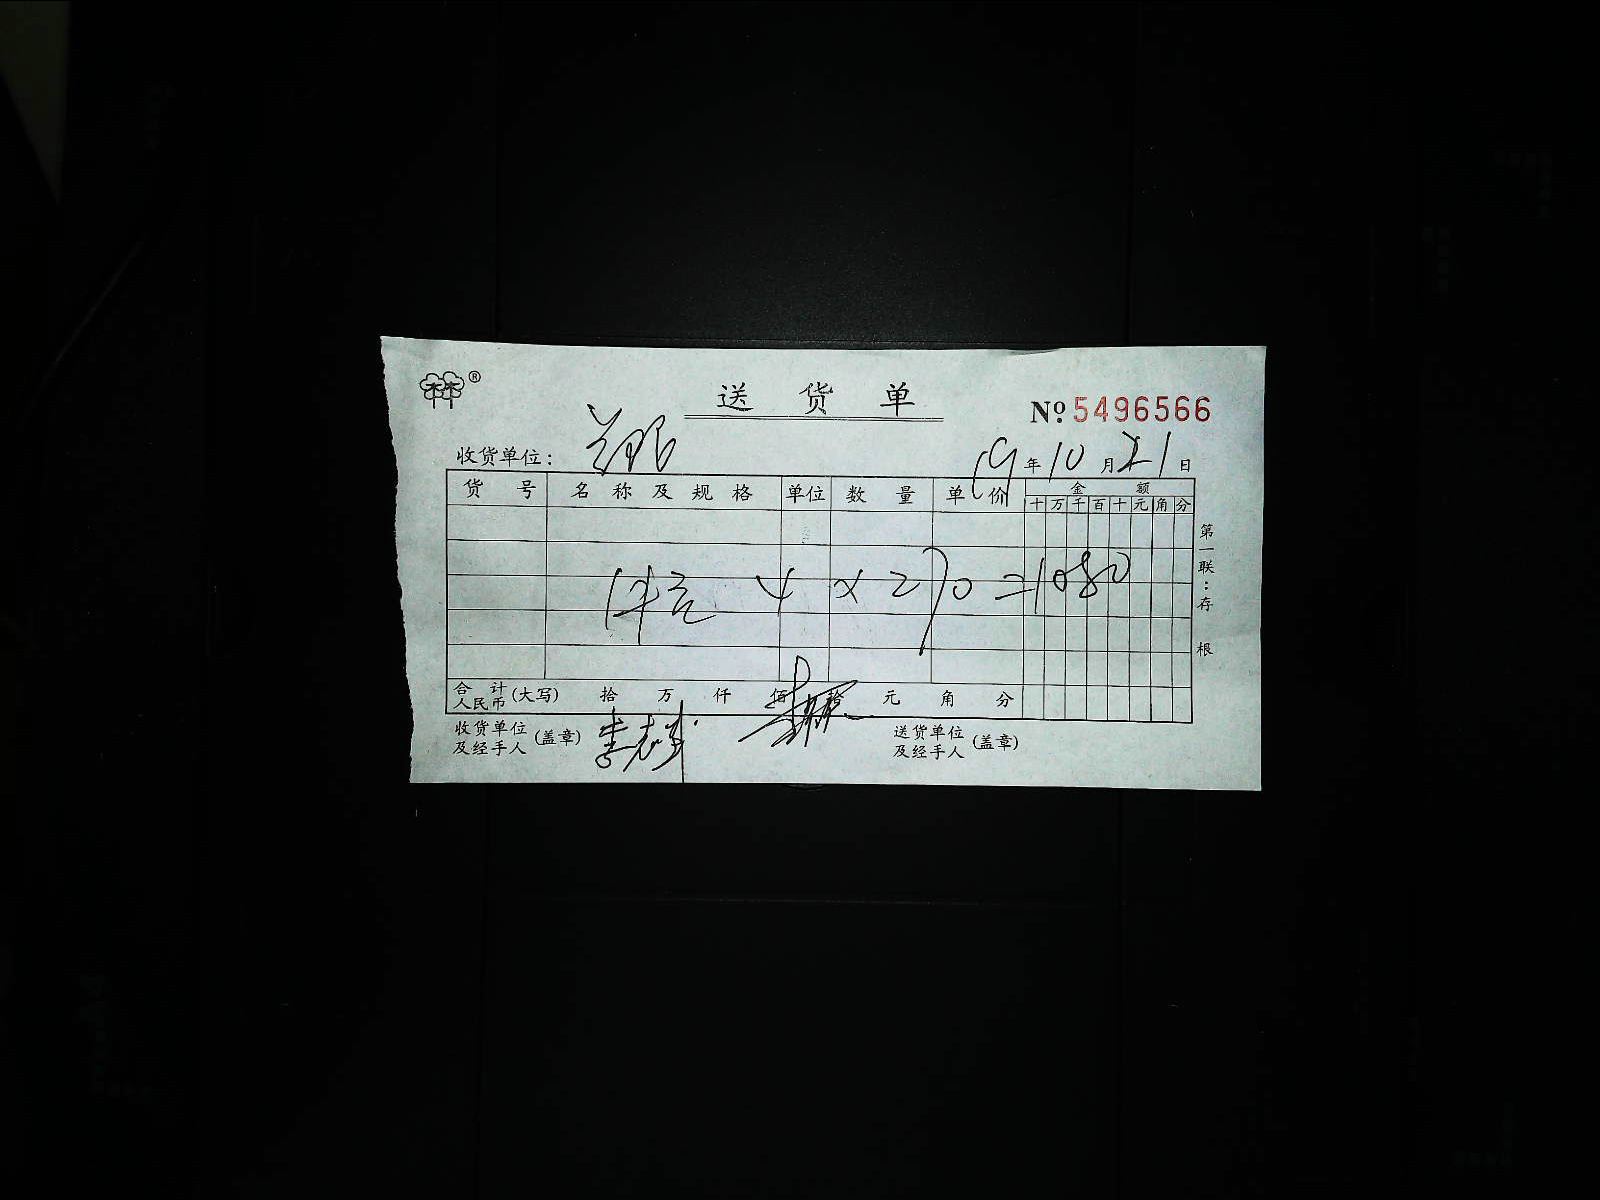 ®
送 货 单
№ 5496566
收货单位：
19 年 10 月 21 日
货 号 名 称 及 规 格 单位 数 量 单 价 金 额
十 万 千 百 十 元 角 分
4 x 270 = 1080
合 计 人民币 (大写) 拾 万 仟 佰 拾 元 角 分
收货单位及经手人 (盖章) 送货单位及经手人 (盖章)
第一联：存根